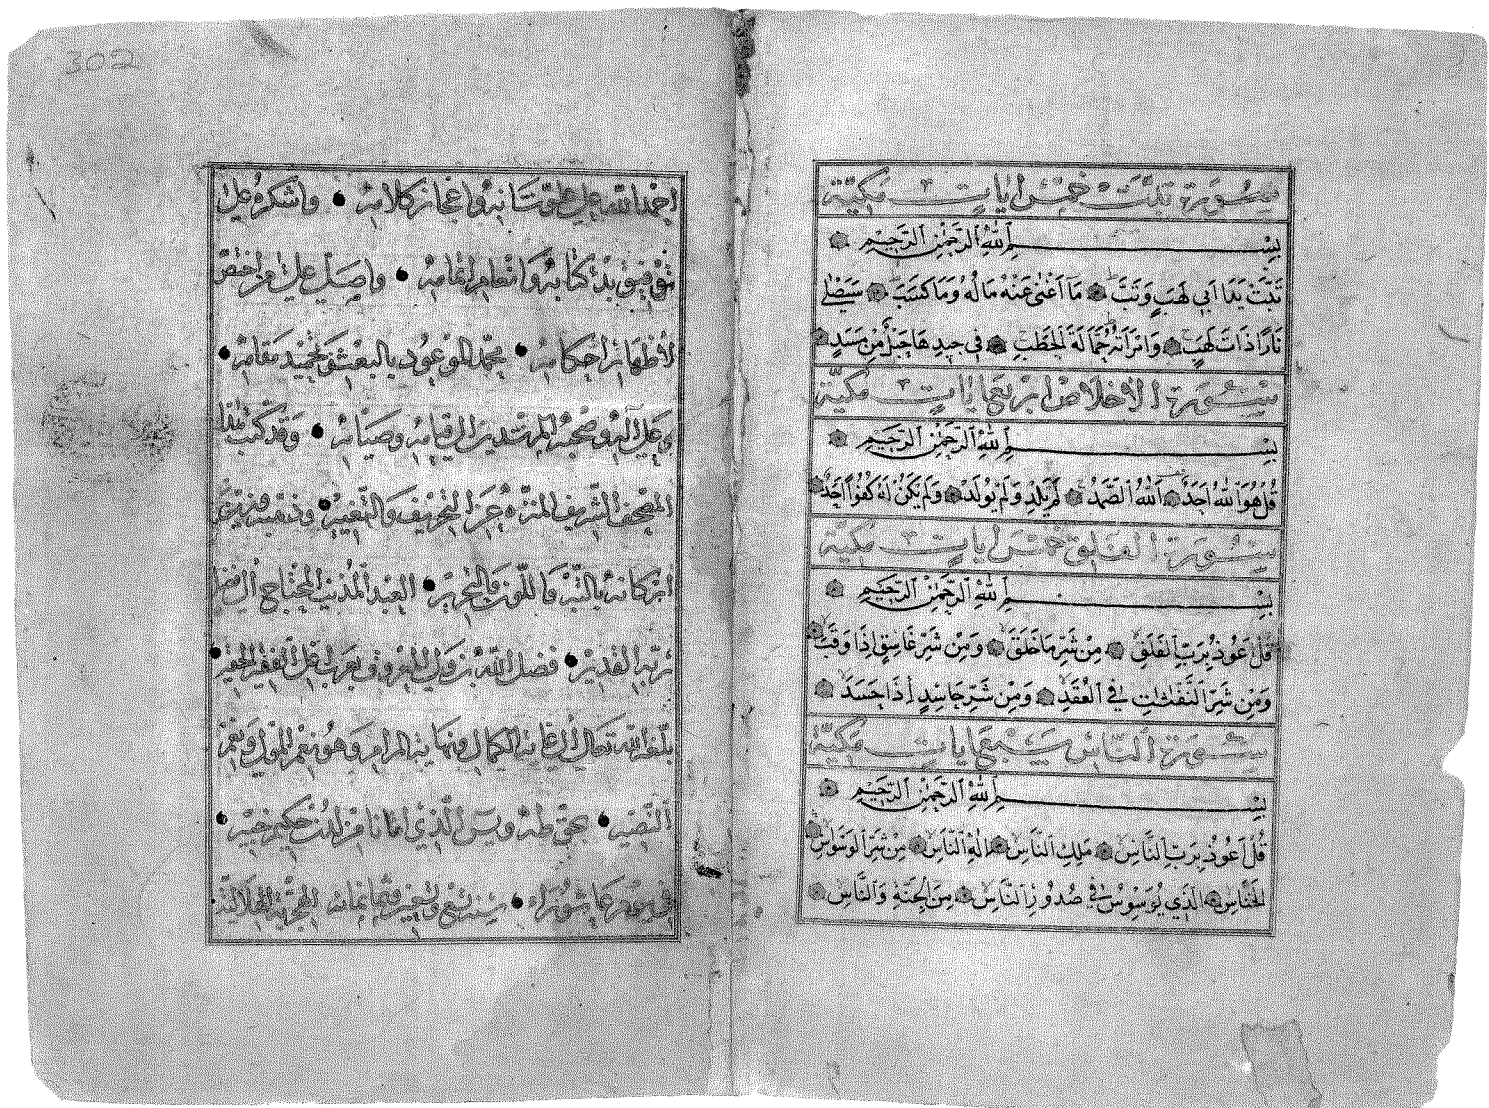 سورة تبت خمس ايات مكية
بسم الله الرحمن الرحيم
تبت يدا ابي لهب وتب ما اغنى عنه ماله وما كسب سيصلى
نارا ذات لهب وامراته حمالة الحطب في جيدها حبل من مسد
سورة الاخلاص اربع ايات مكية
بسم الله الرحمن الرحيم
قل هو الله احد الله الصمد لم يلد ولم يولد ولم يكن له كفوا احد
سورة الفلق خمس ايات مكية
بسم الله الرحمن الرحيم
قل اعوذ برب الفلق من شر ما خلق ومن شر غاسق اذا وقب
ومن شر النفثت في العقد ومن شر حاسد اذا حسد
سورة الناس سبع ايات مكية
بسم الله الرحمن الرحيم
قل اعوذ برب الناس ملك الناس اله الناس من شر الوسواس
الخناس الذي يوسوس في صدور الناس من الجنة والناس
302
احمد الله على علو شانه واعجاز كلامه واشكره على
توفيق بدء كتابه وانعام اتمامه واصلي على من اختص
لاظهار احكامه محمد الموعود بالبعث في تحميد مقامه
وعلى آله وصحبه المهتدين الى قيامه وصيامه وقد كتب هذا
المصحف الشريف المنزه عن التحريف والتغيير وذهبه وزين
اركانه بالتبر واللون والتحرير العبد المذنب المحتاج الى
ربه القدير فضل الله بن ولي المعروف بعرب الفقير الحقير
بلغه الله تعالى الى غاية الكمال ونهاية المرام وهو نعم المولى ونعم
النصير بحق طه ويس الذي اتانا من لدن حكيم خبير
في يوم عاشوراء سنة تسع وتسعين وثمانمائة الهجرية الهلالية